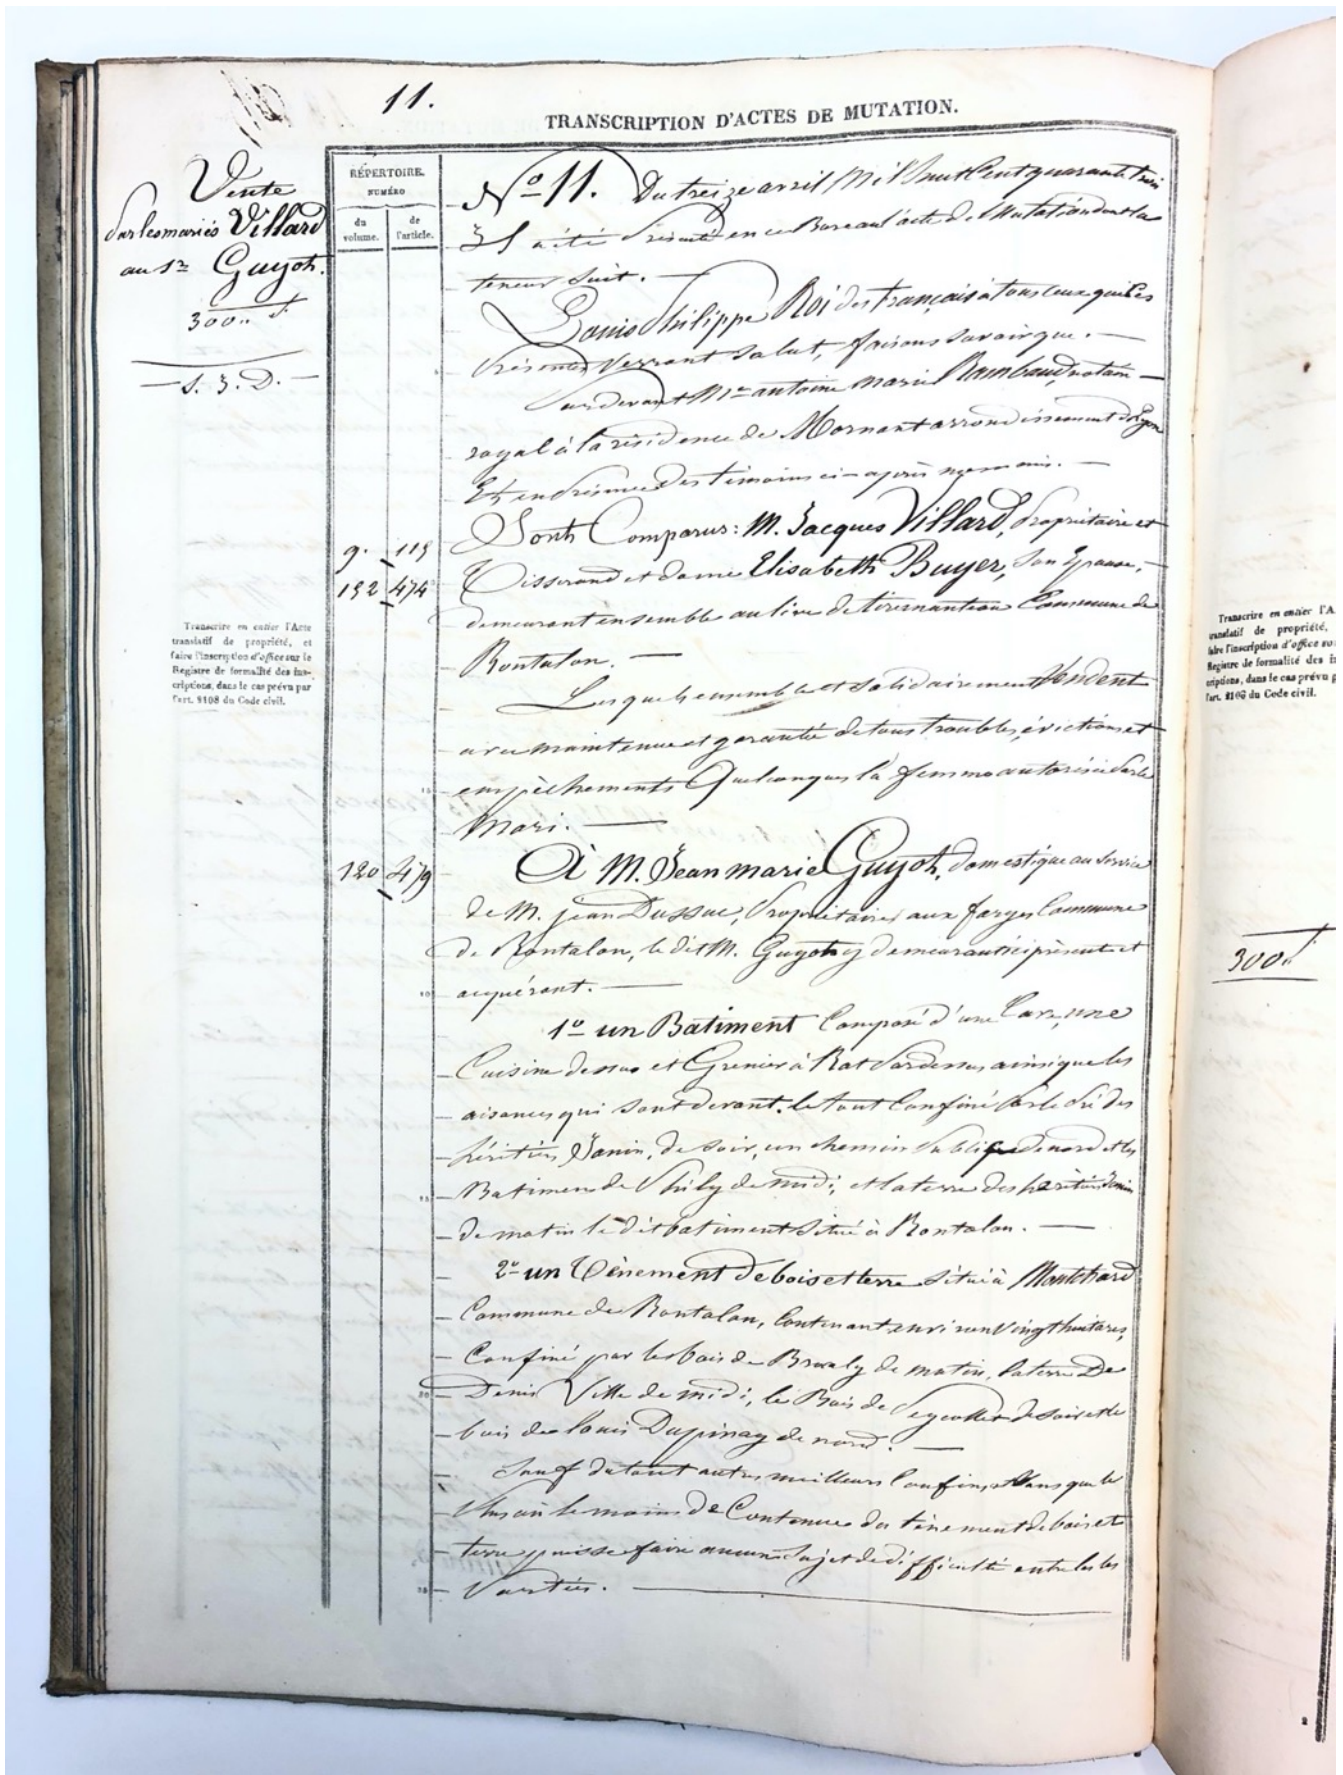 11.
TRANSCRIPTION D'ACTES DE MUTATION.
Vente
par les mariés Villard
au Sr Guyot.
300 f.
S. 3. D.
RÉPERTOIRE.
NUMÉRO
du volume.
de l'article.
9. 115
152 474
120 479
Transcrire en entier l'Acte
translatif de propriété, et
faire l'inscription d'office sur le
Registre de formalité des ins-
criptions, dans le cas prévu par
l'art. 2108 du Code civil.
No 11. Du treize avril Mil huit Cent quarante trois
Il a été Présenté en ce Bureau l'acte de Mutation dont la
teneur suit. —
Louis Philippe Roi des français à tous ceux qui les
Présentes Verront Salut, faisons savoir que. —
Pardevant Me antoine marie Rambaud, notaire —
royal à la résidence de Mornant arrondissement de Lyon
Et en Présence des témoins ci-après nommés. —
Sont Comparus: M. Jacques Villard, Propriétaire et
Tisserand et dame Elisabeth Buyer, Son Epouse, —
demeurant ensemble au lieu de Commune de
Rontalon. —
Lesquels ensemble et solidairement Vendent
avec maintenue et garantie de tous troubles, évictions et
empêchements Quelconques la femme autorisée par le
Mari. —
À M. Jean marie Guyot, domestique au service
de M. jean Dussuc, Propriétaire, aux farges Commune
de Rontalon, le dit M. Guyot y demeurant ici présent et
acquérant. —
1o un Batiment Composé d'une Cave, une
Cuisine dessus et Grenier à Rat Pardessus ainsi que les
aisances qui sont devant. le tout Confiné par le Pré des
héritiers Janin, de soir, un chemin Public de nord et les
Batimens de Phily de midi, et la terre des héritiers Janin
de matin le dit batiment situé à Rontalon. —
2o un Tènement de bois et terre situé à Montchard
Commune de Rontalon, Contenant environ Vingt huit ares,
Confiné par les bois de de matin, la terre De
Denis Ville de midi, le Bois de de soir et le
bois de Louis Dupinay de nord. —
Sauf du tout autres meilleurs Confins, et Sans que le
Plus ou le moins de Contenue du tènement de bois et
terre puisse faire aucun Sujet de difficulté entre les
Parties. —
300 f